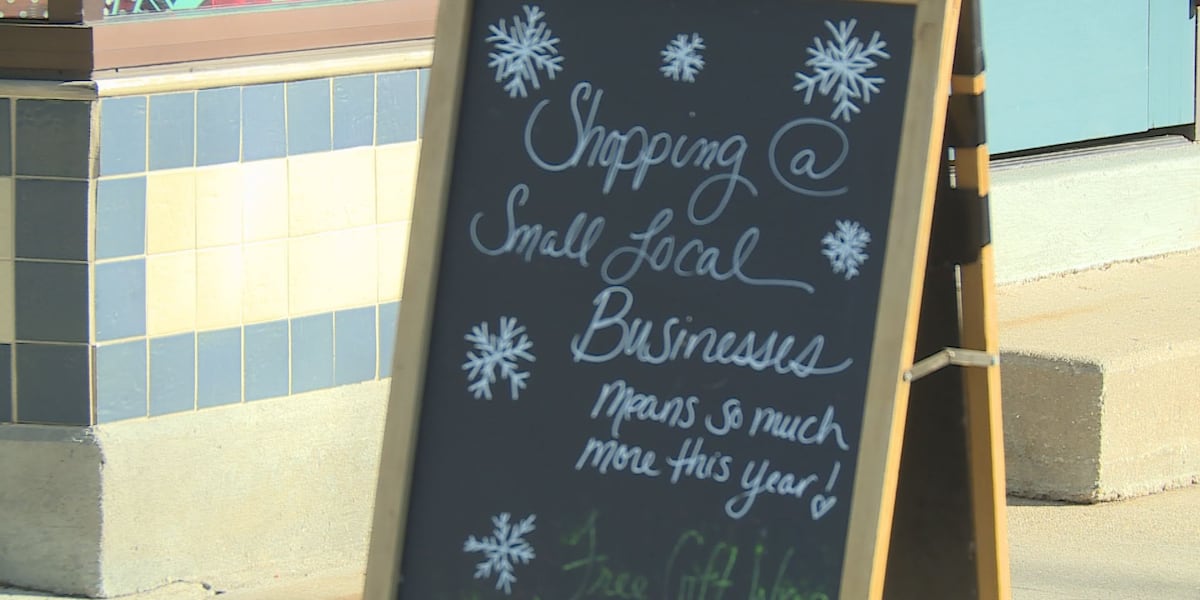 Shopping @
Small Local
Businesses
means so much
more this year!
Free Gift Wrap